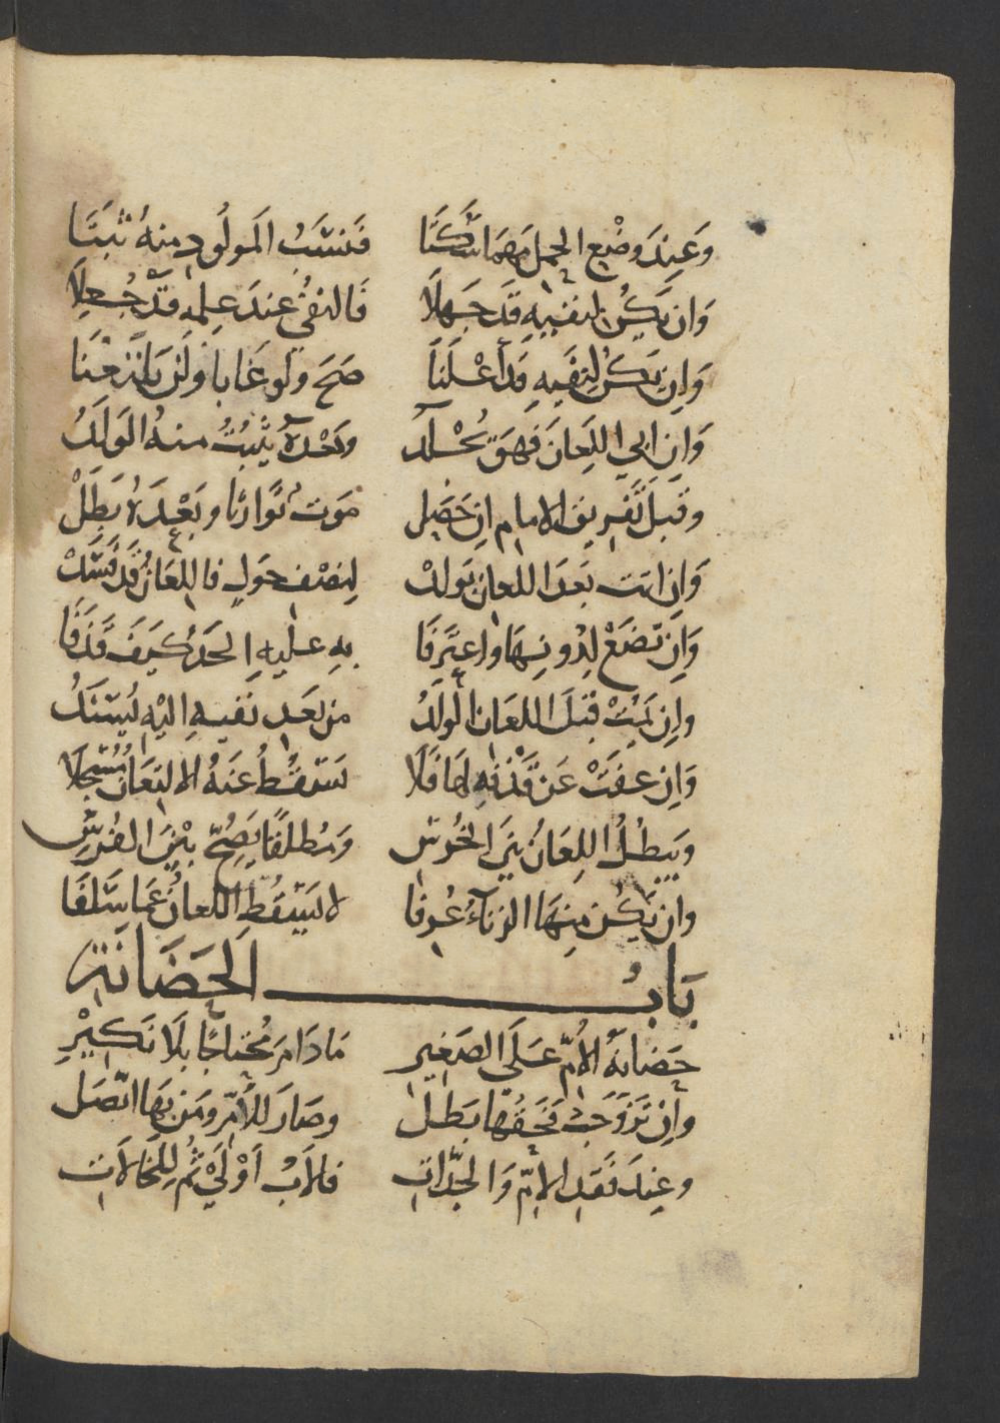 وَعِندَ وضْعِ الحِمل مَهمَا سَكَتَا فَنَسَبُ المَولُودِ منهُ ثبتَا
وَان يَكُن لنفيِهِ قَد جَهلَا فَالنفىُ عِندَ عِلمهِ قَد جُعِلَا
وَاِن يَكن لِنَفيهِ قَد أعْلَنَا صَحَ ولَو غَابا وَلَن
وَاِن ابي اللِعَانَ فَهوَ يُحْلَد وبَعْدَهُ يَثبُتُ منهُ الوَلَدُ
وقَبلَ تَفرِيق الامامِ اِن حَصَل مَوت تَوَارثَا وبَعْدَهُ بَطَلْ
وَاِن اتت بَعدَ اللعان بولدْ لِنصْف حَولٍ فاللِعَانُ قَد فَسَدْ
وَاِن تضَعْ لِدُونِهَا واعتَرَفَا بهِ عليهِ الحَدُ كيَفَ قَذَفَا
واِن يَمُتْ قبَل اللعَان الولَدُ من بَعدِ نَفيهِ اليْهِ يُسنَدُ
وَاِن عفَتْ عَن قَذْفهِ لهَا فَلَا يَسقُطُ عَنهُ الالتِعَانُ مُسْجَلا
ويَبطُلُ اللِعَانُ بَينَ الخُرسِ وَمُطلقًا يَصِحّ بيْنَ الفُرسِ
وان يَكُن مِنهَا الزنَآءُ عُرِفَا لا يَسقُطِ اللعانُ عَما سَلفَا
بَابُ الحَضَانَةِ
حَضانةُ الأُمِّ عَلَى الصَغِيرِ مَا دَامَ مُحْتاجًا بلَا نَكيْرِ
وإن تَزَوَجَتْ فَحَقُهَا بَطَل وصَارَ للأُمِّ ومَن بهَا اتّصَل
وعِندَ فَقدِ الاُمِّ وَالجَدّاتِ فالاَبُ اَوْلَىْ ثُم لِلخَالَاتِ